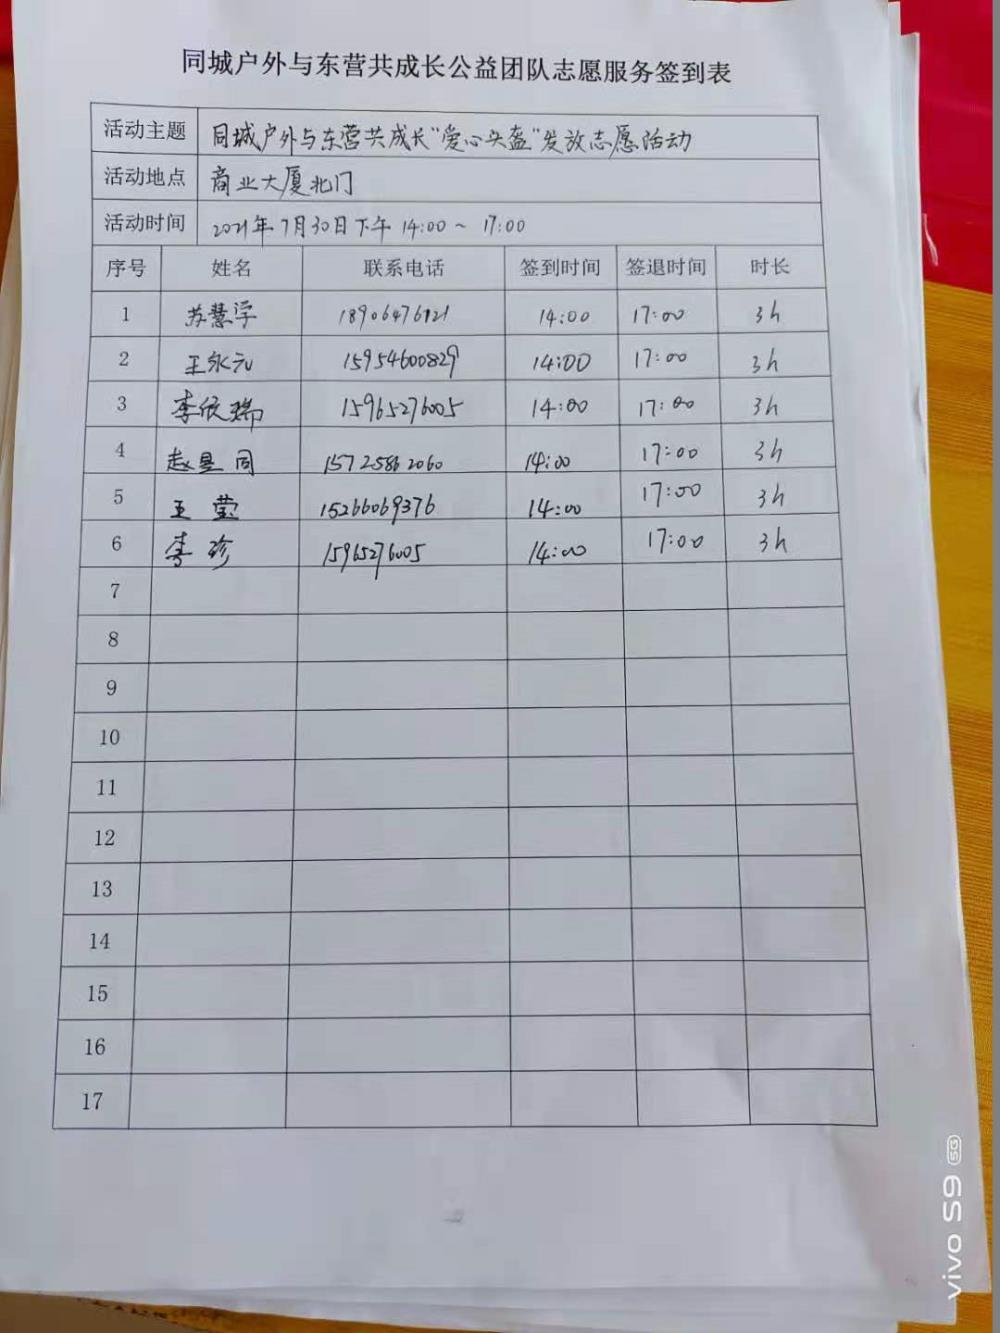 同城户外与东营共成长公益团队志愿服务签到表
活动主题 同城户外与东营共成长"爱心头盔"发放志愿活动
活动地点 商业大厦北门
活动时间 2021年7月30日下午 14:00~17:00
序号 姓名 联系电话 签到时间 签退时间 时长
1 苏慧学 14:00 17:00 3h
2 王永元 15954600829 14:00 17:00 3h
3 李依瑞 15965276005 14:00 17:00 3h
4 赵昱同 15725862060 14:00 17:00 3h
5 王莹 15266069376 14:00 17:00 3h
6 李珍 15965276005 14:00 17:00 3h
7
8
9
10
11
12
13
14
15
16
17
vivo S9 5G